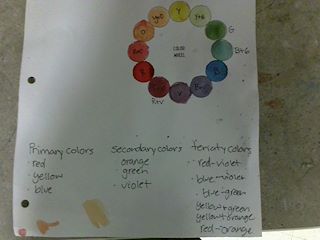 Y
Y+O
Y+G
O
G
R+O
B+G
COLOR
WHEEL
R
B
R+V
V
B+V
Primary colors
Secondary colors
Tericaty colors
· red
orange
· red-violet
· yellow
green
· blue-violet
· blue
· violet
· blue-green
yellow+green
yellow+orange
red-orange